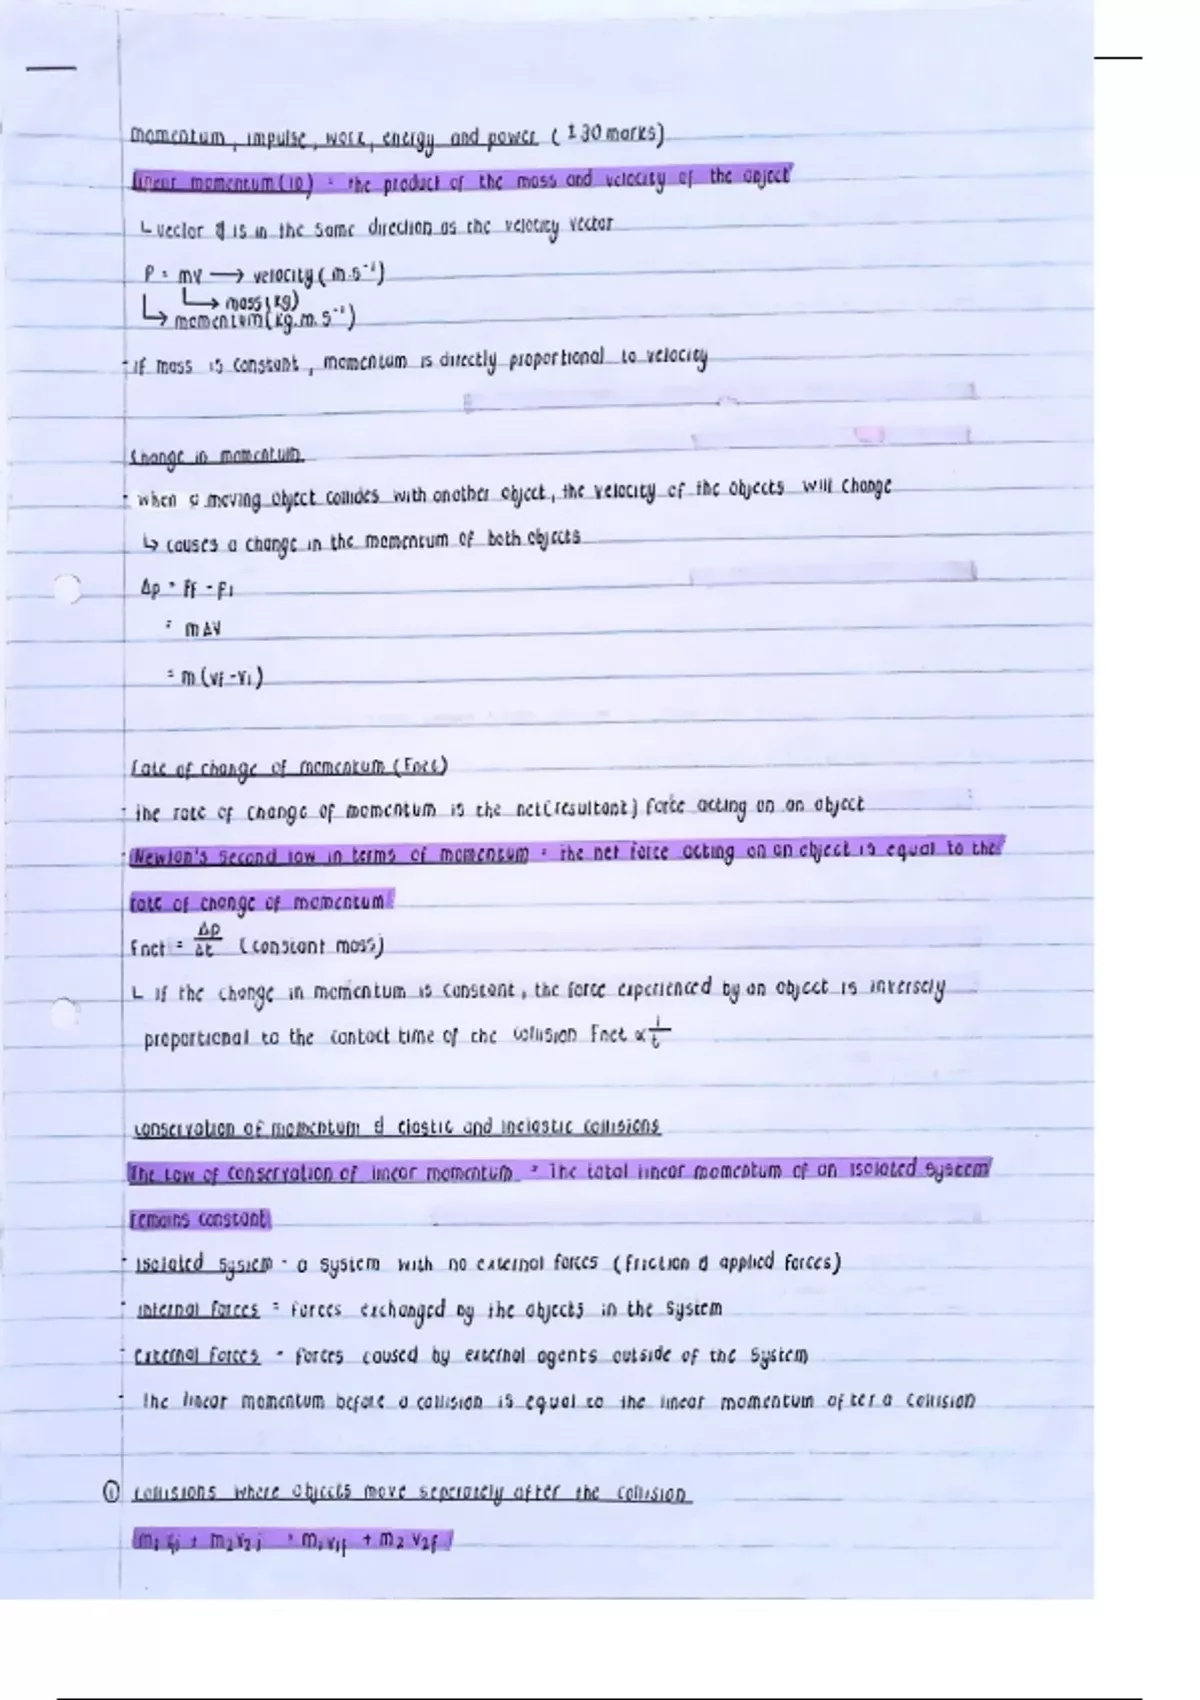 momentum, impulse, work, energy and power (± 30 marks)
linear momentum (1D) = the product of the mass and velocity of the object
↳ vector & is in the same direction as the velocity vector
P = mv → velocity (m.s⁻¹)
↳ mass (kg)
↳ momentum (kg.m.s⁻¹)
- if mass is constant, momentum is directly proportional to velocity
Change in momentum
- when a moving object collides with another object, the velocity of the objects will change
↳ causes a change in the momentum of both objects
Δp = Pf - Pi
= mΔv
= m (vf - vi)
Rate of change of momentum (Fnet)
- the rate of change of momentum is the net (resultant) force acting on an object
- Newton's second law in terms of momentum = the net force acting on an object is equal to the
rate of change of momentum
Fnet = Δp/Δt (constant mass)
↳ if the change in momentum is constant, the force experienced by an object is inversely
proportional to the contact time of the collision Fnet ∝ 1/t
Conservation of momentum & elastic and inelastic collisions
The law of conservation of linear momentum = The total linear momentum of an isolated system
remains constant
- Isolated system - a system with no external forces (friction & applied forces)
- internal forces = forces exchanged by the objects in the system
- external forces - forces caused by external agents outside of the system
- The linear momentum before a collision is equal to the linear momentum after a collision
① collisions where objects move seperately after the collision
m₁v₁i + m₂v₂i = m₁v₁f + m₂v₂f